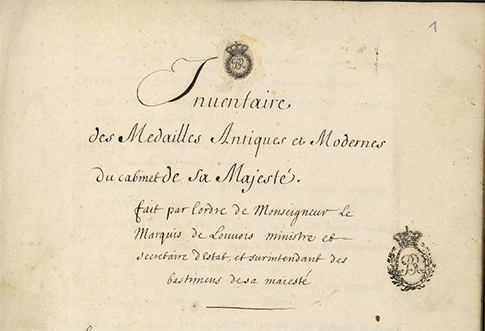 1
BR
Inuentaire
des Medailles Antiques et Modernes
du cabinet de sa Majesté.
fait par l'ordre de Monseigneur Le
Marquis de Louuois ministre et
secretaire d'estat, et surintendant des
bastimens de sa maiesté
BR